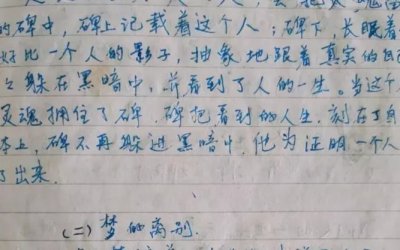 的碑中，碑上记载着这个人；碑下，长眠着
好比一个人的影子，抽象地跟着真实的自己
躲在黑暗中，前看到了人的一生。当这个人
灵魂拥住了碑，碑把看到的人生，刻在了身
本上，碑不再躲过黑暗中，他为证明一个人
了出来.
(二)梦的离别.